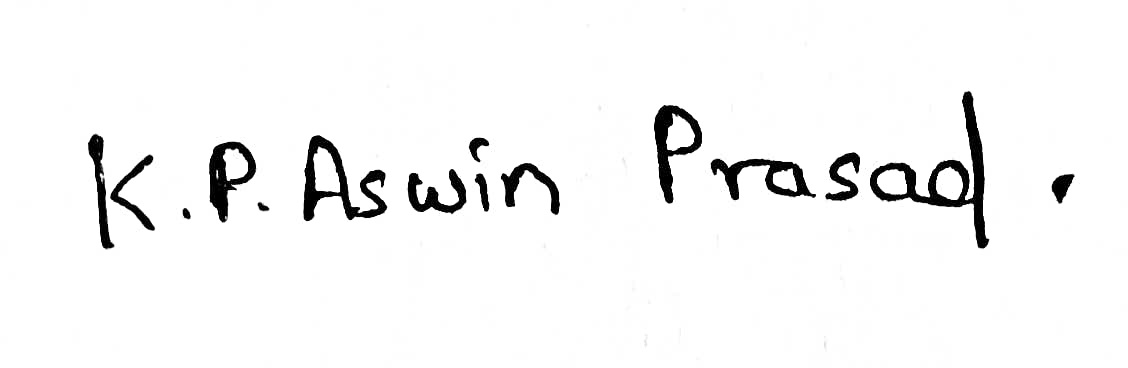 K.P. Aswin Prasad.